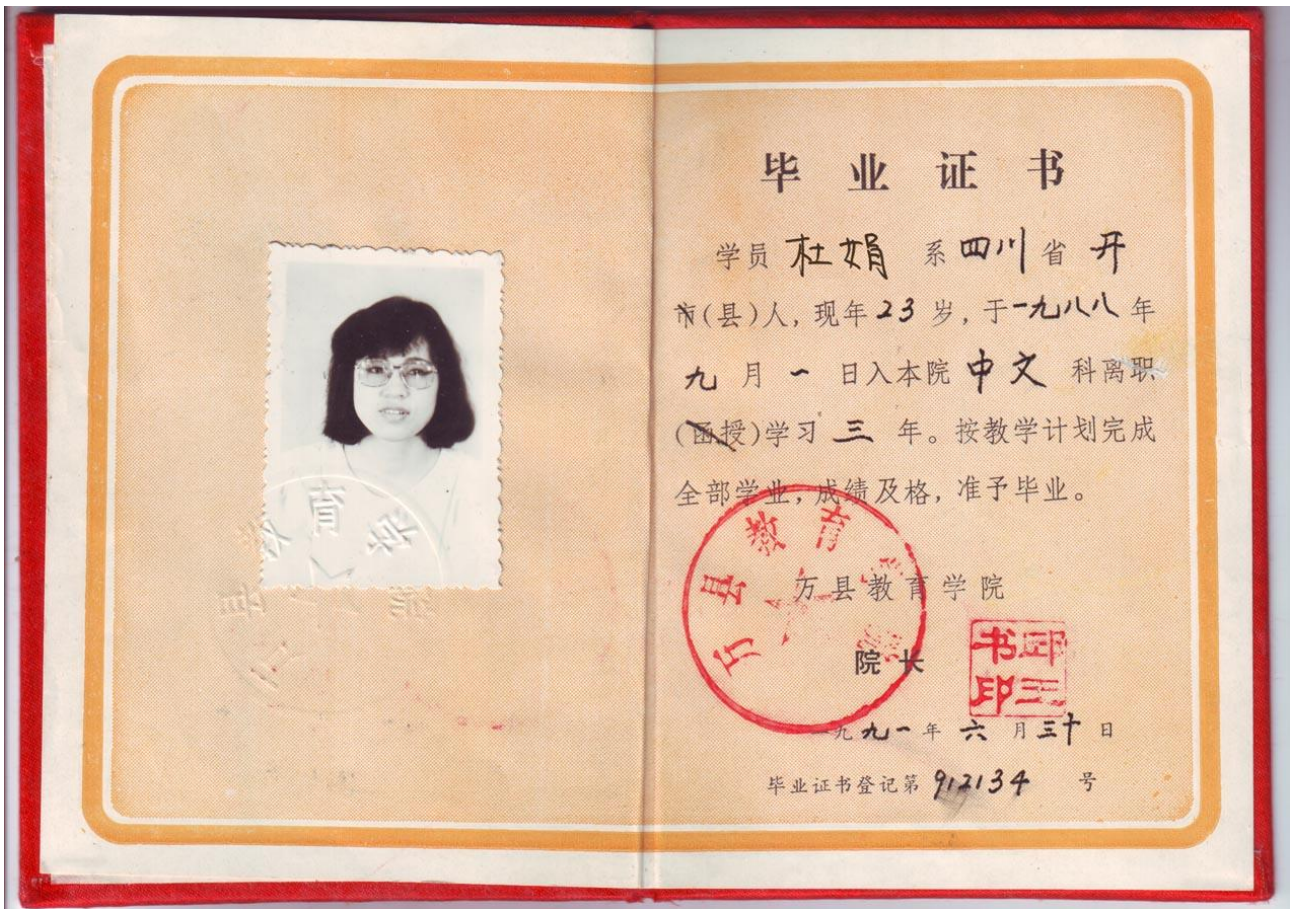 毕业证书
学员 杜娟 系 四川 省 开
市(县)人，现年 23 岁，于一九八八年
九 月 一 日入本院 中文 科离职
(函授)学习 三 年。按教学计划完成
全部学业，成绩及格，准予毕业。
万县教育学院
万县教育学院
院长
邱三书印
一九九一年 六 月三十日
毕业证书登记第 912134 号